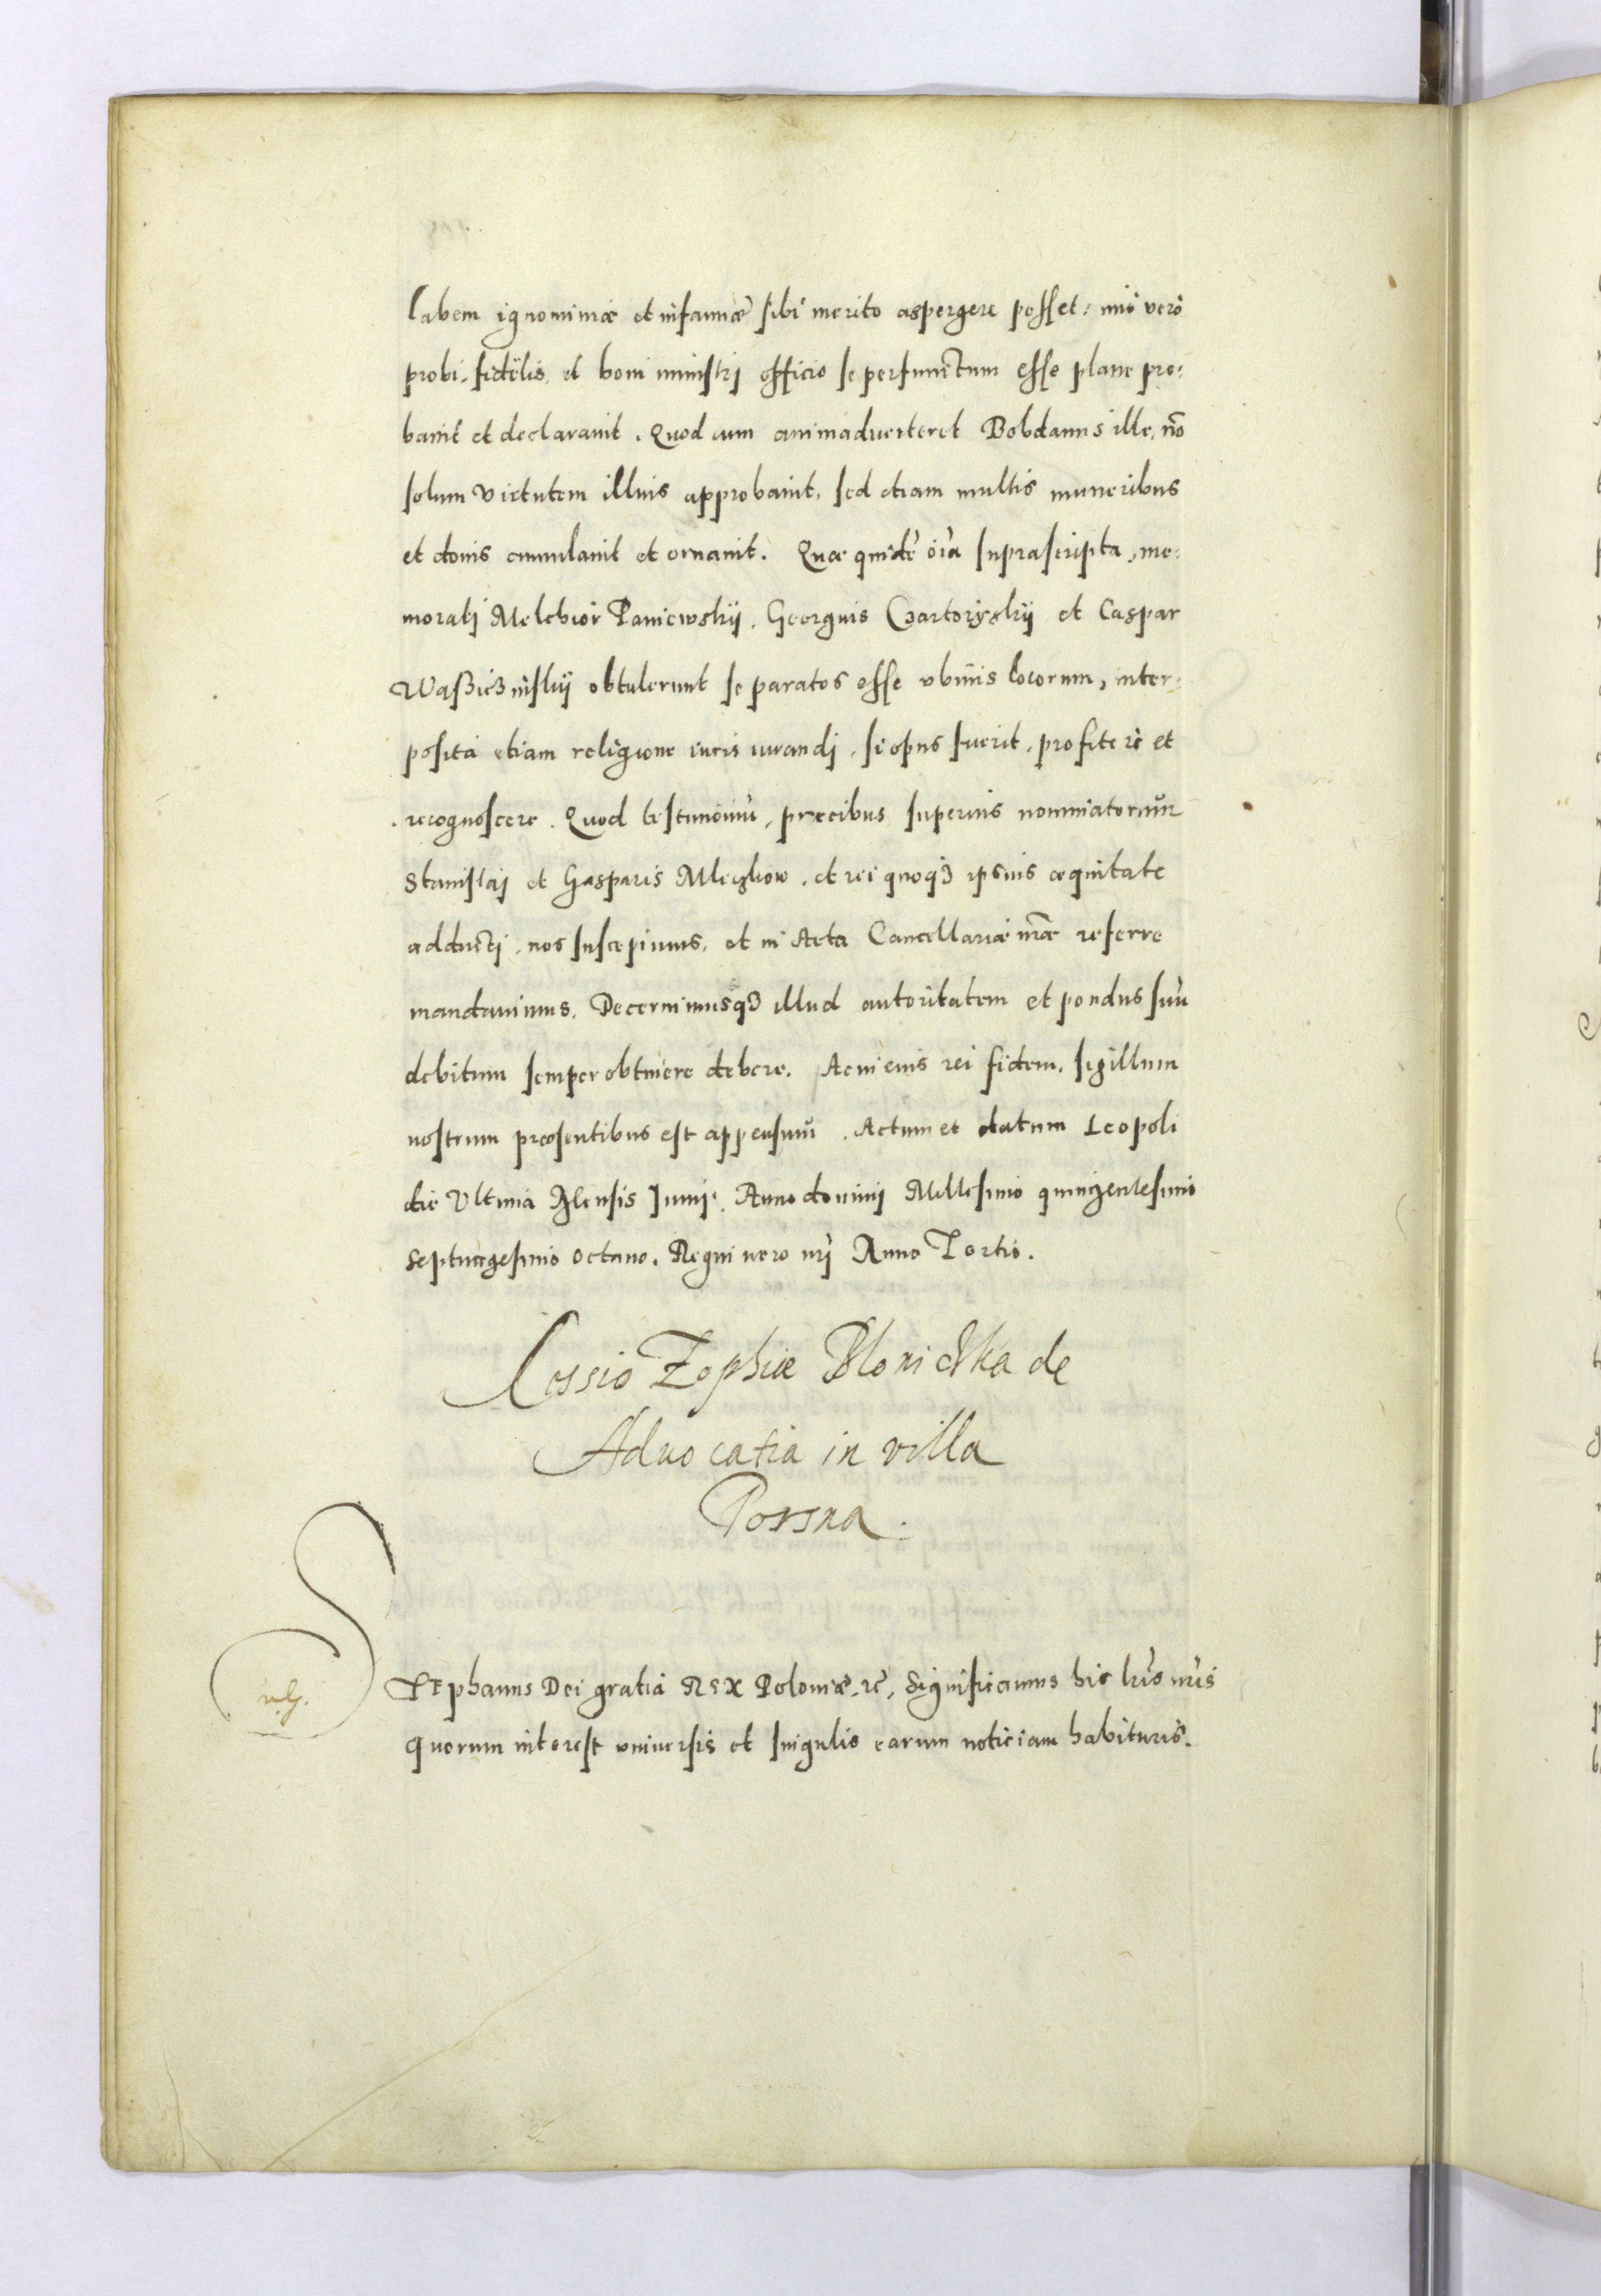 labem ignominiæ et infamiæ sibi merito aspergere posset: imò verò
probi, fidelis, et boni ministrj officio se perfunctum esse plane pro:
bavit et declaravit. Quod cum animadverteret Bohdanus ille, nõ
solum virtutem illius approbavit, sed etiam multis muneribus
et donis cumulavit et ornavit. Quæ quidẽ oĩa suprascripta, me:
moratj Melchior Paniewskij, Georgius Czartoryskij et Caspar
obtulerunt se paratos esse ubivis locorum, inter:
posita etiam religione iuris iurandj, si opus fuerit, profiteri et
recognoscere. Quod testimoniũ, precibus superius nominatorum
Stanislaj et Gasparis Mleczkow, et rei quoq3 ipsius æquitate
adductj, nos suscepimus, et in Acta Cancellariæ nr̃æ referre
mandavimus. Decernimusq3 illud autoritatem et pondus suũ
debitum semper obtinere debere. In cuius rei fidem, sigillum
nostrum præsentibus est appensum. Actum et datum Leopoli
die ultima Mensis Junij. Anno dominj Millesimo quingentesimo
septuagesimo octavo. Regni vero nr̃j Anno Tertio.
Cessio Zophiæ Blonickka de
Advocatia in villa
Possna.
STEphanus Dei gratia REX Poloniæ, &c, Significamus his lr̃is nr̃is
quorum interest universis et singulis earum noticiam habituris.